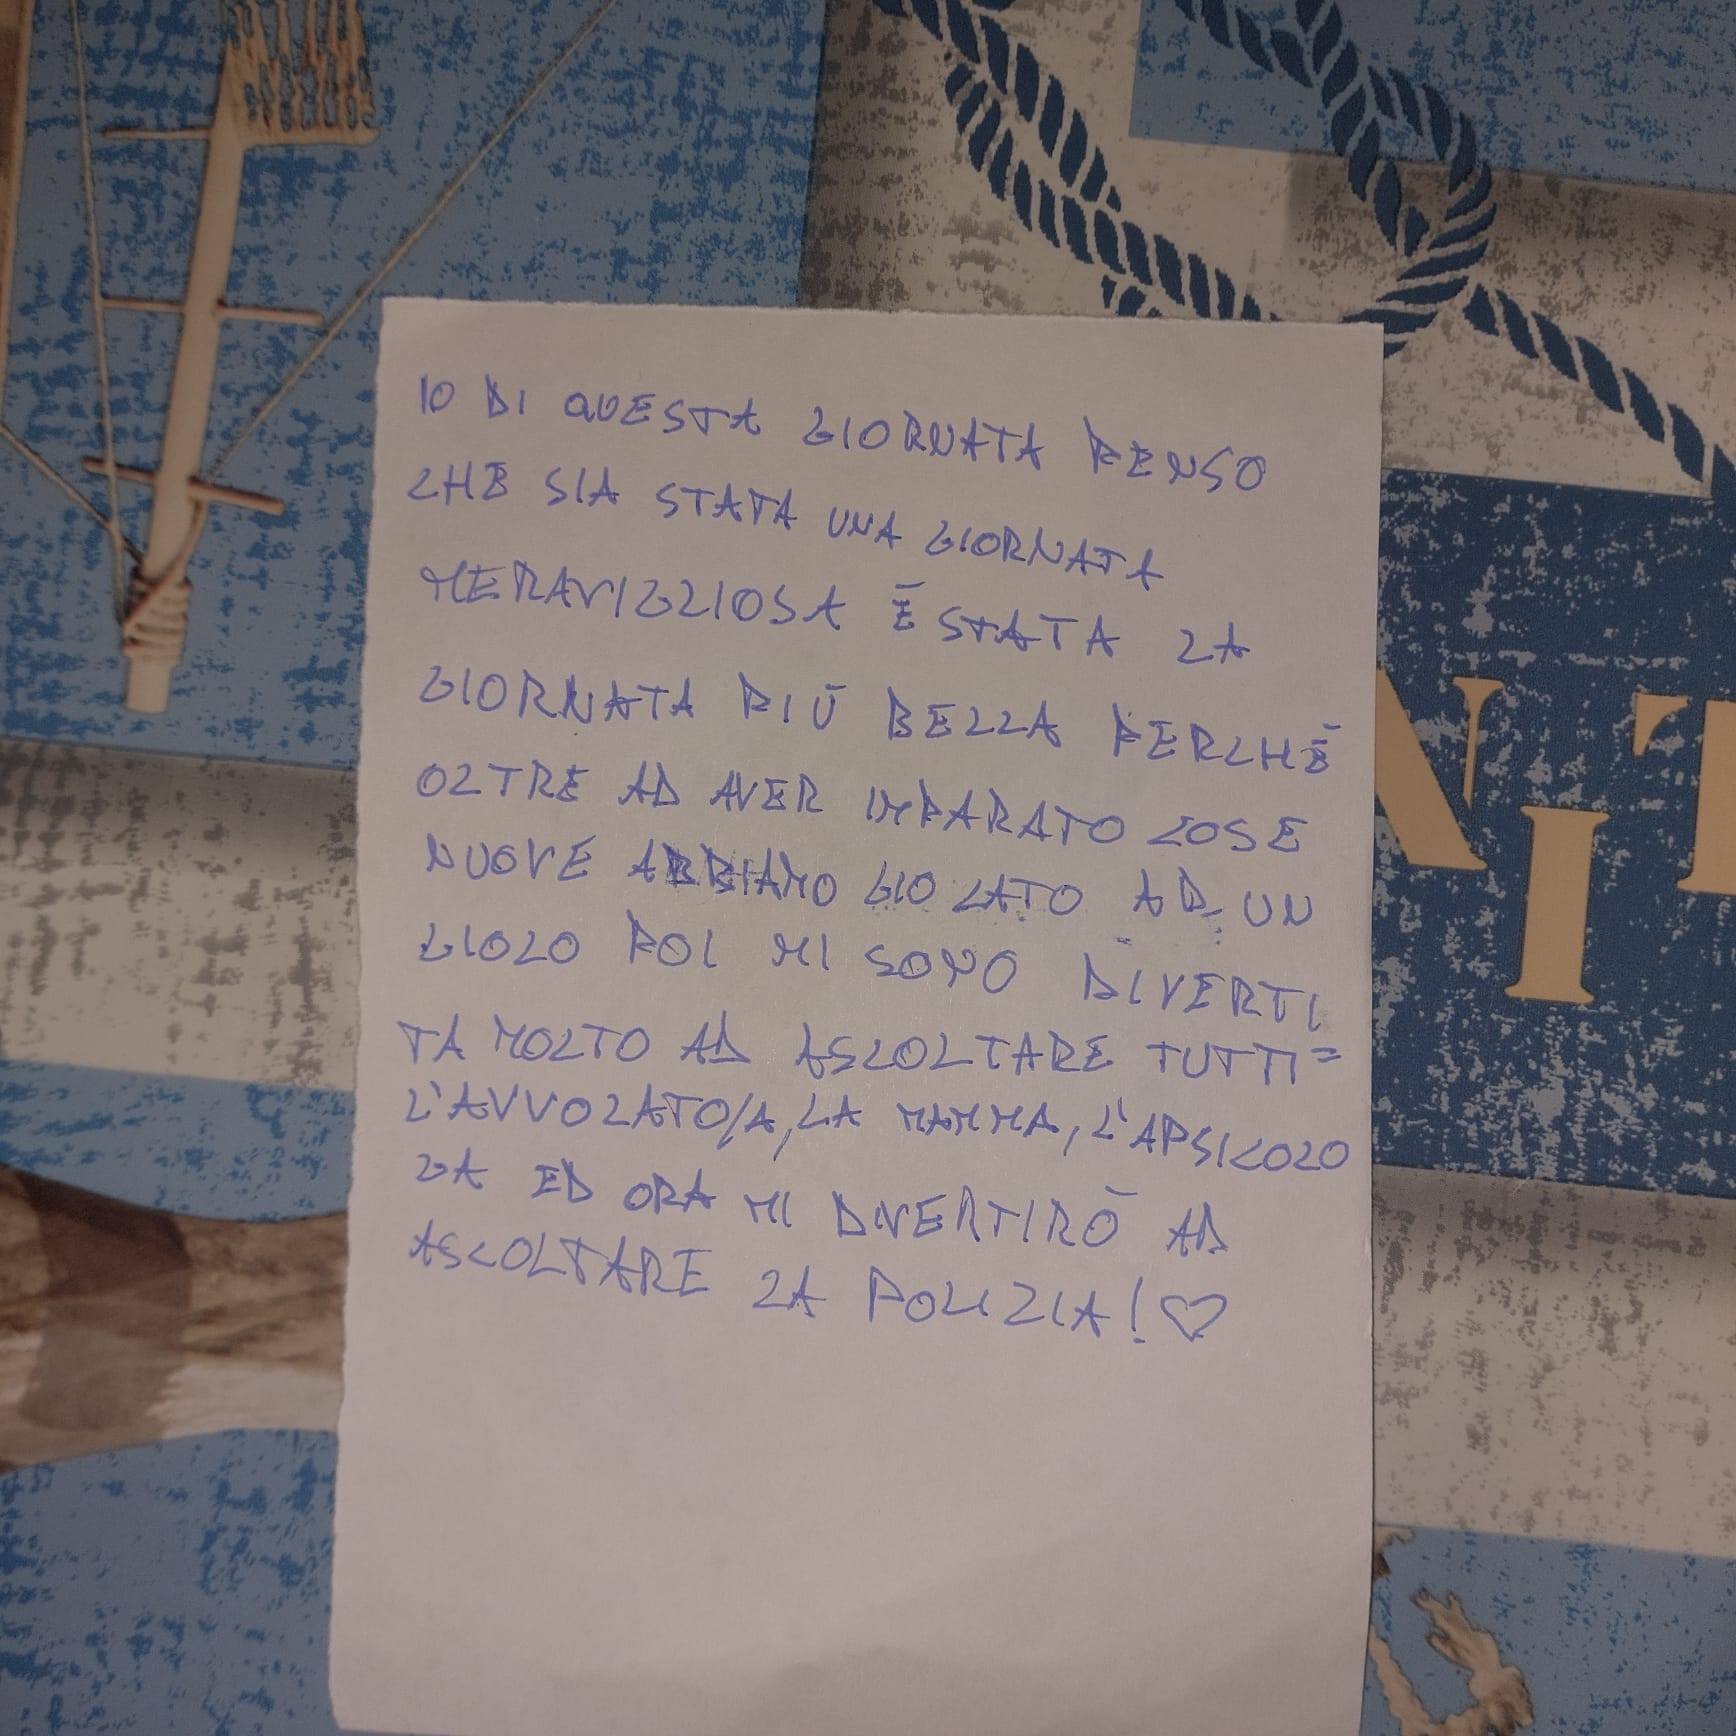 IO DI QUESTA GIORNATA PENSO
CHE SIA STATA UNA GIORNATA
MERAVIGLIOSA È STATA LA
GIORNATA PIÙ BELLA PERCHÈ
OLTRE AD AVER IMPARATO COSE
NUOVE ABBIAMO GIOCATO AD UN
GIOCO POI MI SONO DIVERTI
TA MOLTO AD ASCOLTARE TUTTI=
L'AVVOCATO/A, LA MAMMA, L'APSICOLO
GA ED ORA MI DIVERTIRÒ AD
ASCOLTARE LA POLIZIA! ♡
NT
I